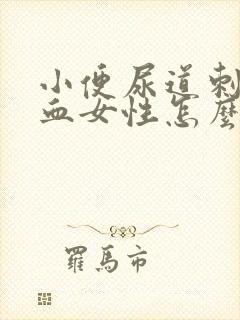 小便尿道刺
血女性怎麼
羅馬市